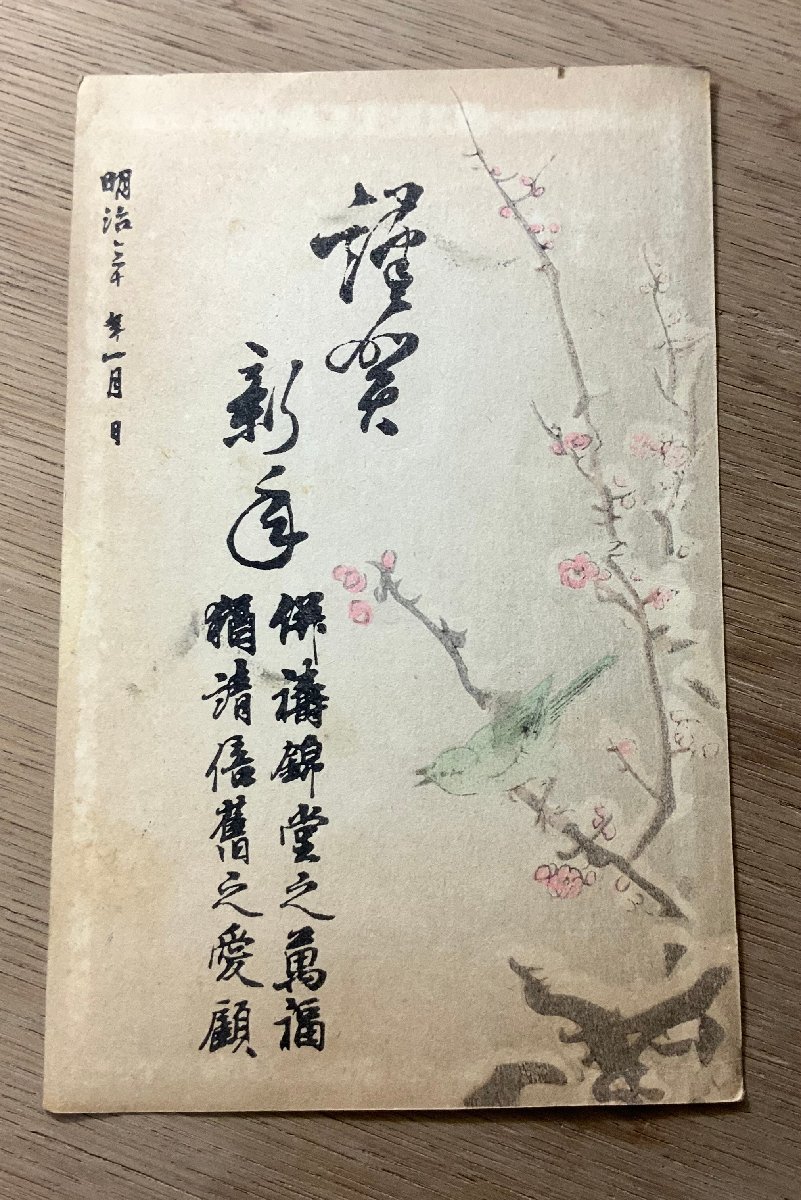 謹賀
新年
併禱錦堂之萬福
猶請倍舊之愛顧
明治三十 年一月 日